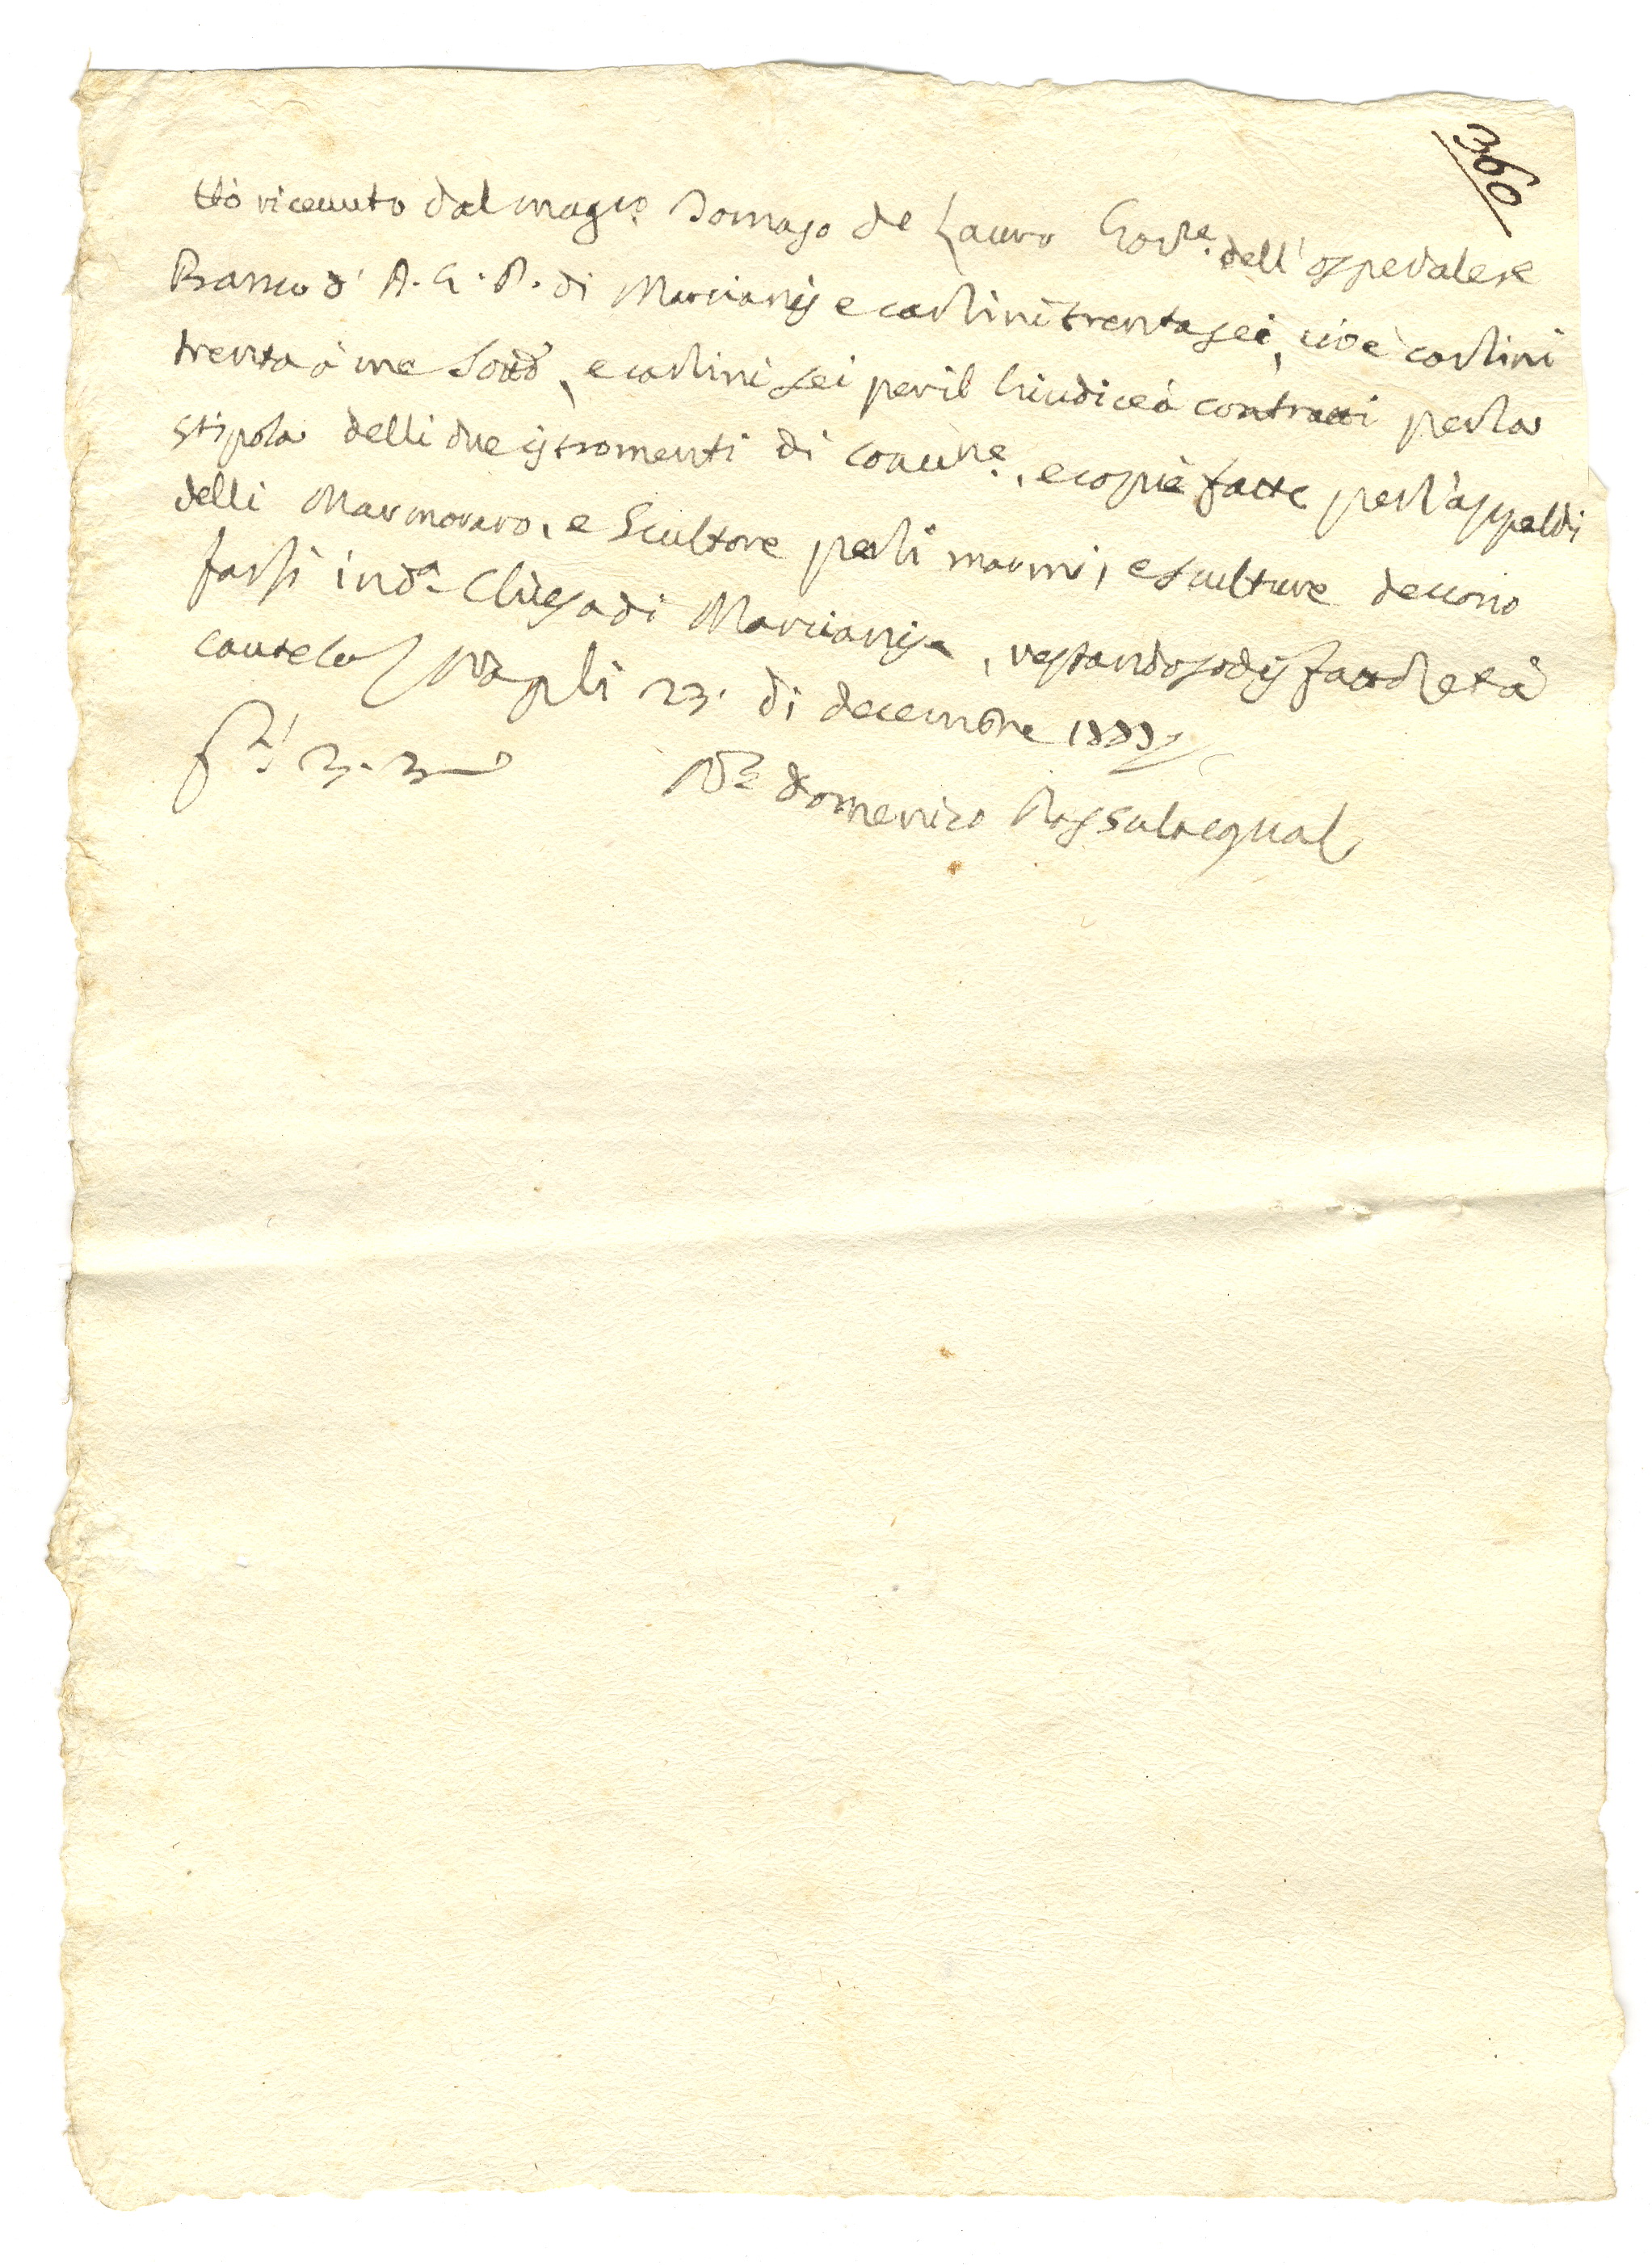 360
Hò riceuuto dal magco. Tomaso de Lauro Gov.re dell'ospedale, e
Banco d' A. G. P. di Marcianise carlini trentasei, cioè carlini
trenta à me sotto, e carlini sei per il Giudice à contratti per la
stipola delli due istromenti di conune., e copie fatte per l'appalti
delli Marmoraro, e Scultore per li marmi, e sculture deuono
farsi in da. Chiesa di Marcianise, restando sodisfatto, et à
cautela Napoli 23. di decembre 1777
3. 3
Nr. Domenico Passalacqua